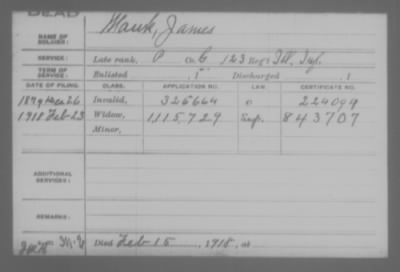 DEAD
NAME OF SOLDIER: Hawk, James
SERVICE: Late rank, P Co. C 123 Reg't Ill, Inf.
TERM OF SERVICE: Enlisted , 1 Discharged , 1
DATE OF FILING. CLASS. APPLICATION NO. LAW. CERTIFICATE NO.
1879 Dec 26 Invalid, 325664 224099
1918 Feb-23 Widow, 1115729 843707
Minor,
ADDITIONAL SERVICES:
REMARKS:
Died Feb 15, 1918, at